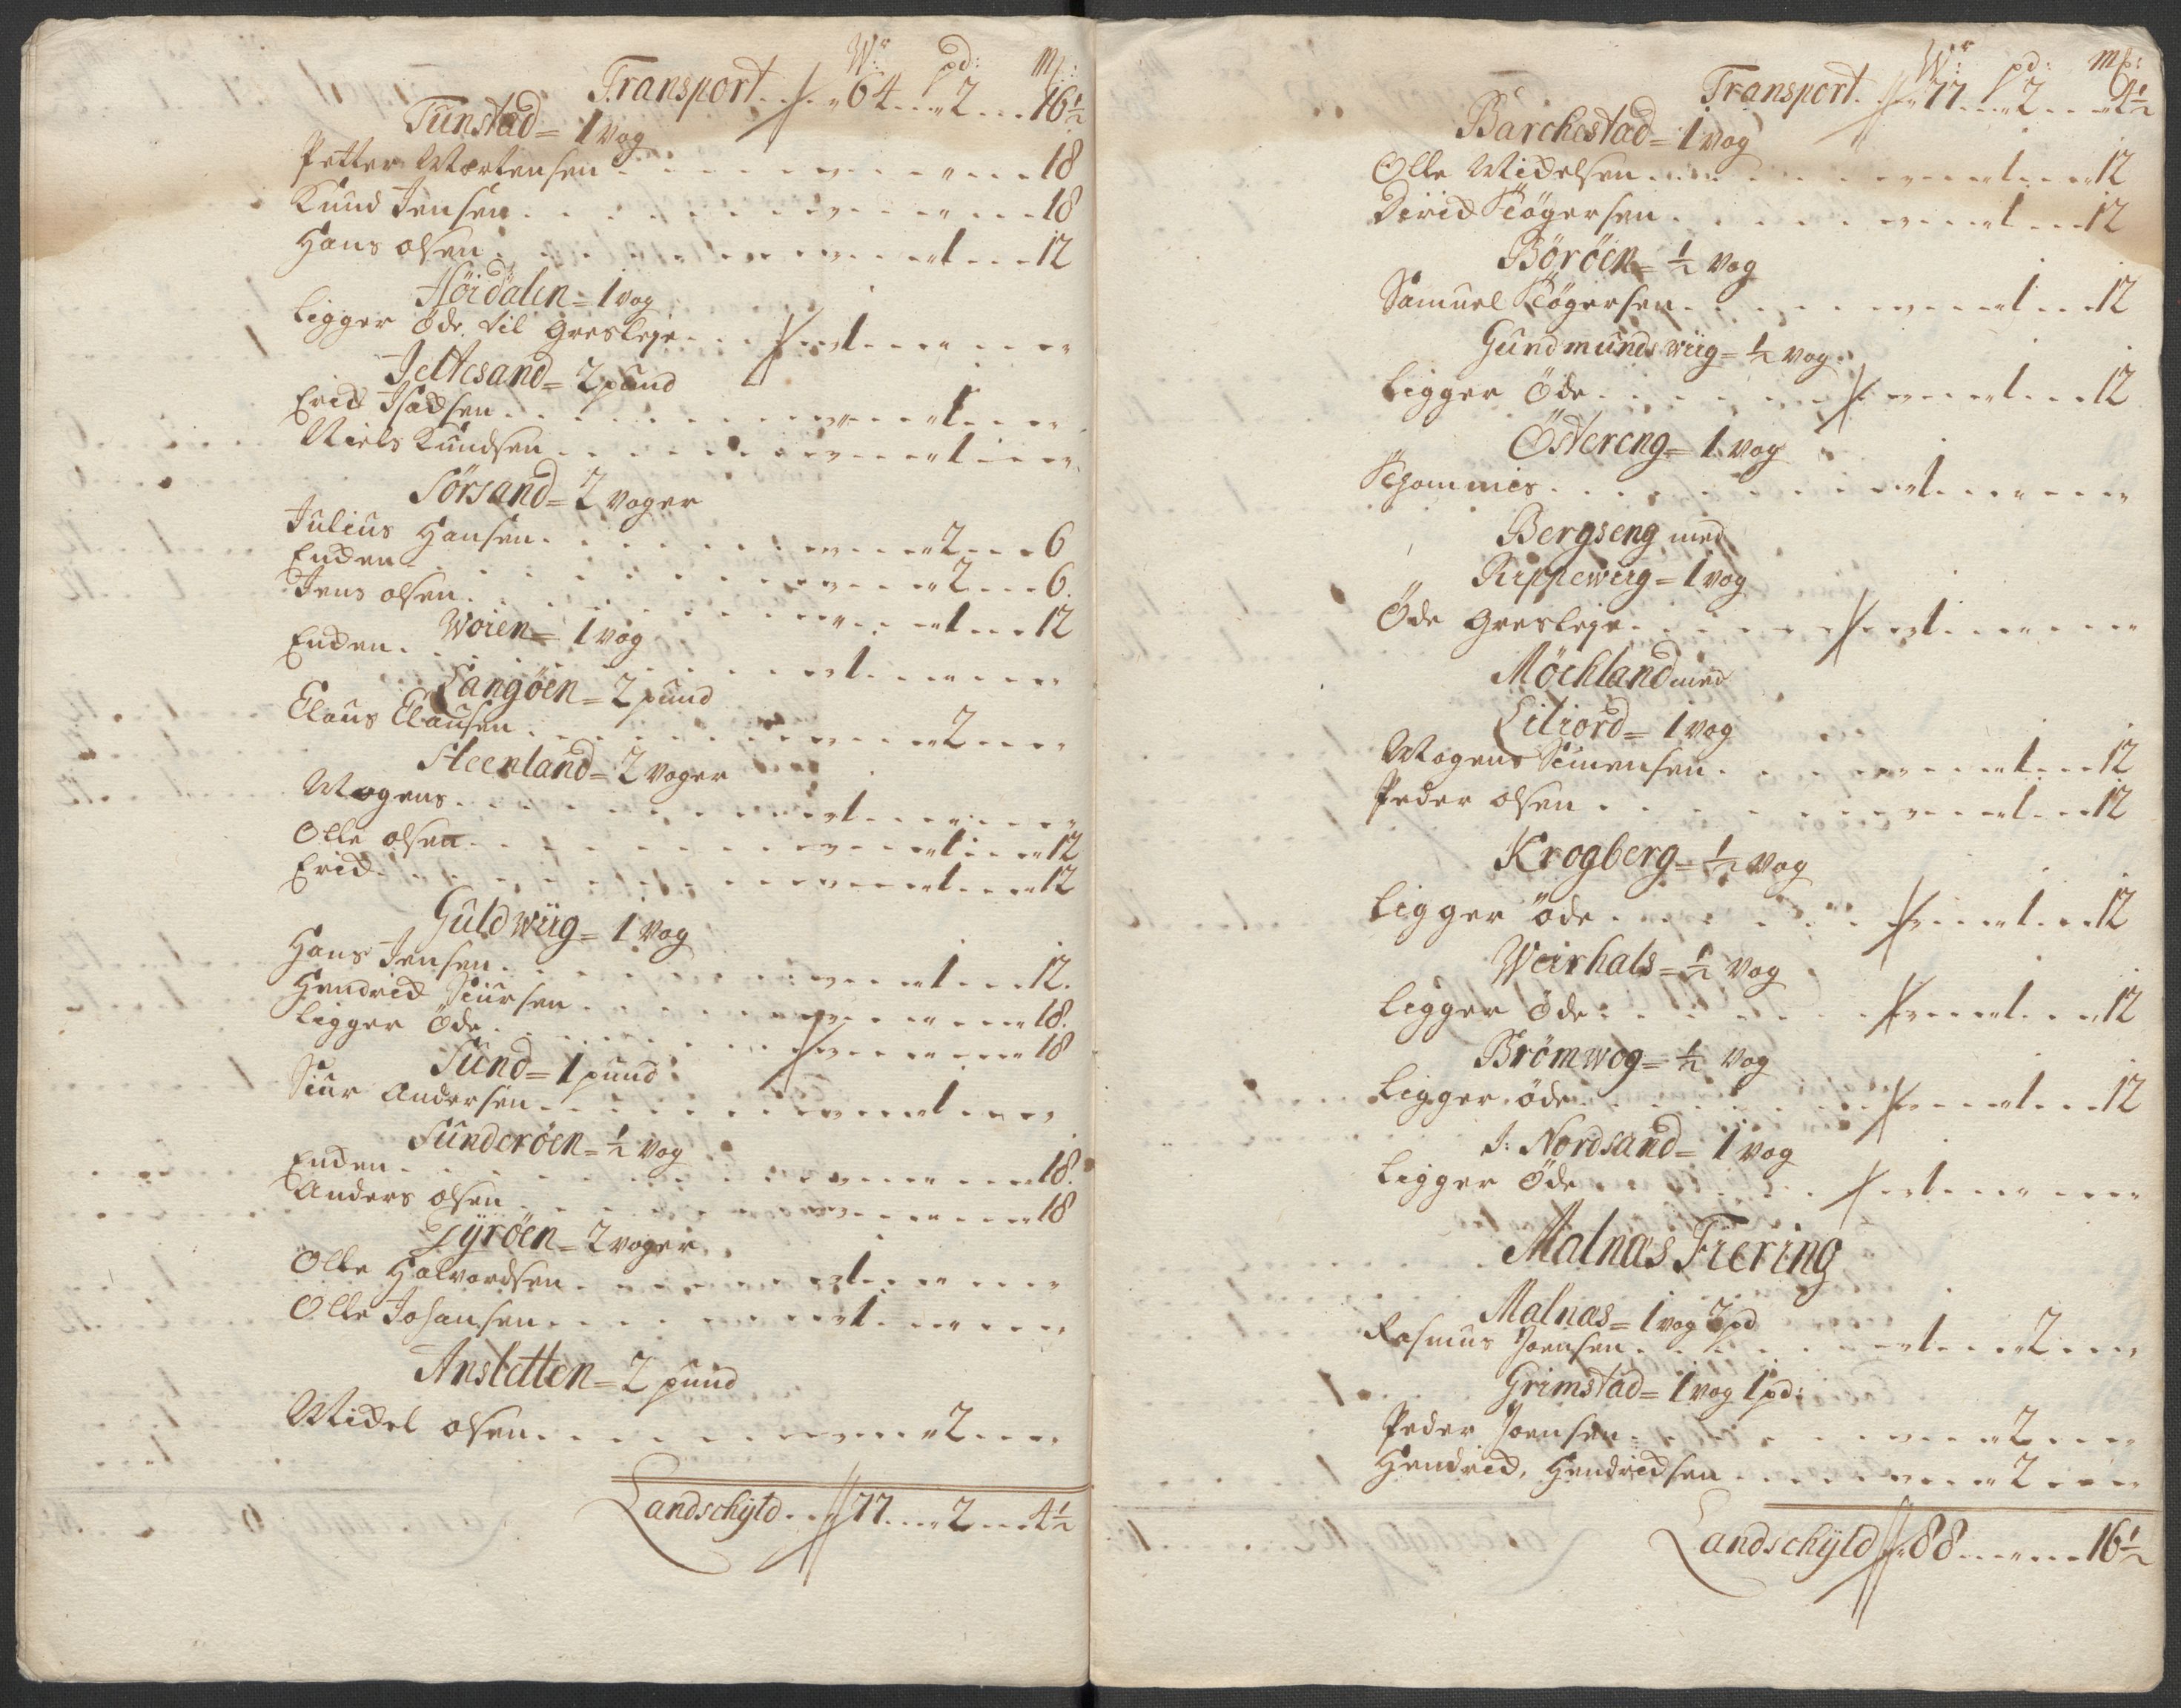 Wr: pd: mk:
Transport . . 64 . . 2 . . 16½
Tunstad = 1 vog
Petter Mortensen . . . " . . " . . 18
Knud Jensen . . . " . . " . . 18
Hans olsen . . . " . . 1 . . 12
Höidalen = 1 vog
Ligger öde til Gresleje . . . 1 . . " . . "
Jettesand = 2 pund
Erich Isachsen . . . " . . 1 . . "
Niels Knudsen . . . " . . 1 . . "
Sörsand = 2 voger
Julius Hansen . . . " . . 2 . . 6
Enchen . . . " . . 2 . . 6.
Jens olsen . . . " . . 1 . . 12
Woien = 1 vog
Enchen . . . 1 . . " . . "
Langöen = 2 pund
Claus Clausen . . . " . . 2 . . "
Steenland = 2 voger
Mogens . . . 1 . . " . . "
Olle olsen . . . " . . 1 . . 12
Erich . . . " . . 1 . . 12
Guldwiig = 1 vog
Hans Jensen . . . " . . 1 . . 12.
Hendrich Siursen . . . " . . " . . 18.
Ligger öde . . . " . . " . . 18
Sund = 1 pund
Siur Andersen . . . " . . 1 . . "
Sunderöen = ½ vog
Enchen . . . " . . " . . 18.
Anders olsen . . . " . . " . . 18
Tyröen = 2 voger
Olle Halvordsen . . . 1 . . " . . "
Olle Johansen . . . 1 . . " . . "
Anstetten = 2 pund
Michel olsen . . . " . . 2 . . "
Landschyld . . 77 . . 2 . . 4½
Wr: pd: mk:
Transport . . 77 . . 2 . . 4½
Barchestad = 1 vog
Olle Michelsen . . . " . . 1 . . 12
Dirich Tögersen . . . " . . 1 . . 12
Böröen = ½ vog
Samuel Tögersen . . . " . . 1 . . 12
Gundmundswiig = ½ vog
Ligger öde . . . " . . 1 . . 12
Östereng = 1 vog
. . . 1 . . " . . "
Bergseng med
Rippewiig = 1 vog
Öde Gresleje . . . 1 . . " . . "
Möchland med
Litiord = 1 vog
Mogens Simensen . . . " . . 1 . . 12
Peder olsen . . . " . . 1 . . 12
Krogberg = ½ vog
Ligger öde . . . " . . 1 . . 12
Weirhals = ½ vog
Ligger öde . . . " . . 1 . . 12
Brömwog = ½ vog
Ligger öde . . . " . . 1 . . 12
J: Nordsand = 1 vog
Ligger öde . . . 1 . . " . . "
Malnæs Fiering
Malnæs = 1 vog 2 pd
Rasmus Joensen . . . 1 . . 2 . . "
Grimstad = 1 vog 1 pd:
Peder Joensen . . . " . . 2 . . "
Hendrich Hendrichsen . . . " . . 2 . . "
Landschyld 88 . . " . . 16½